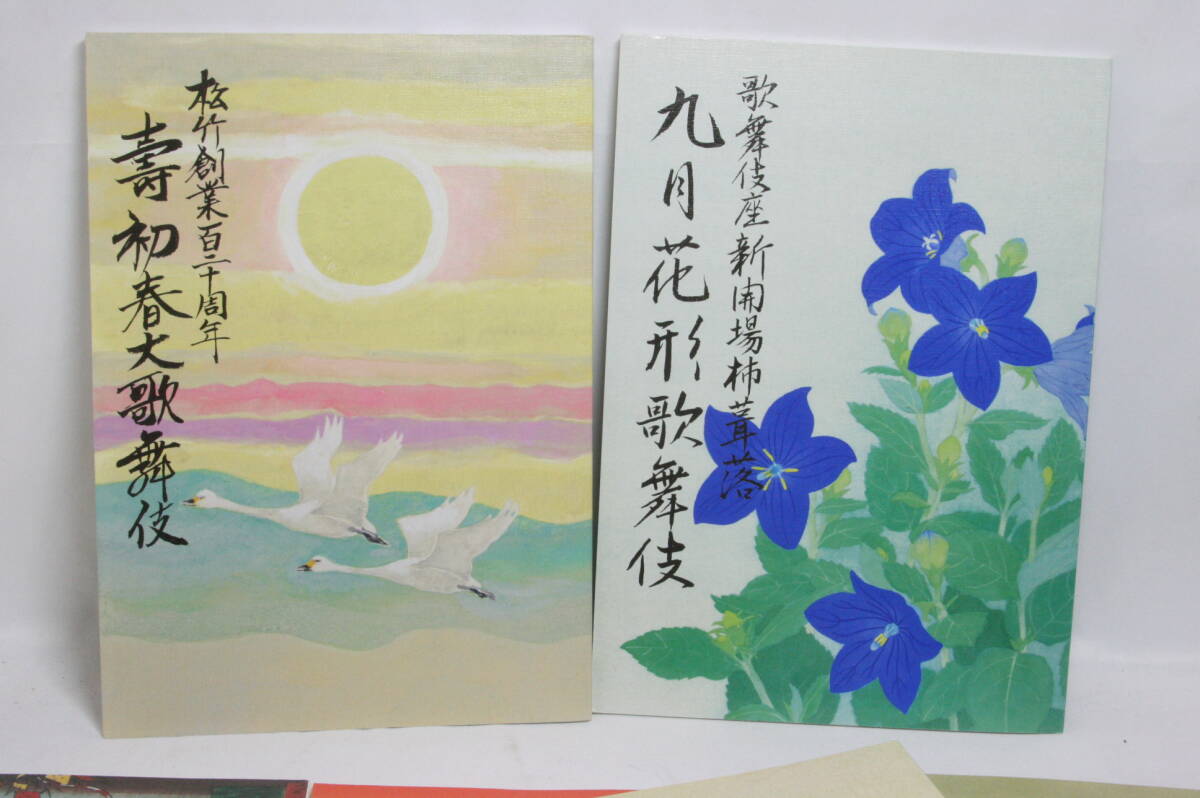 松竹創業百二十周年
壽初春大歌舞伎
歌舞伎座新開場柿葺落
九月花形歌舞伎